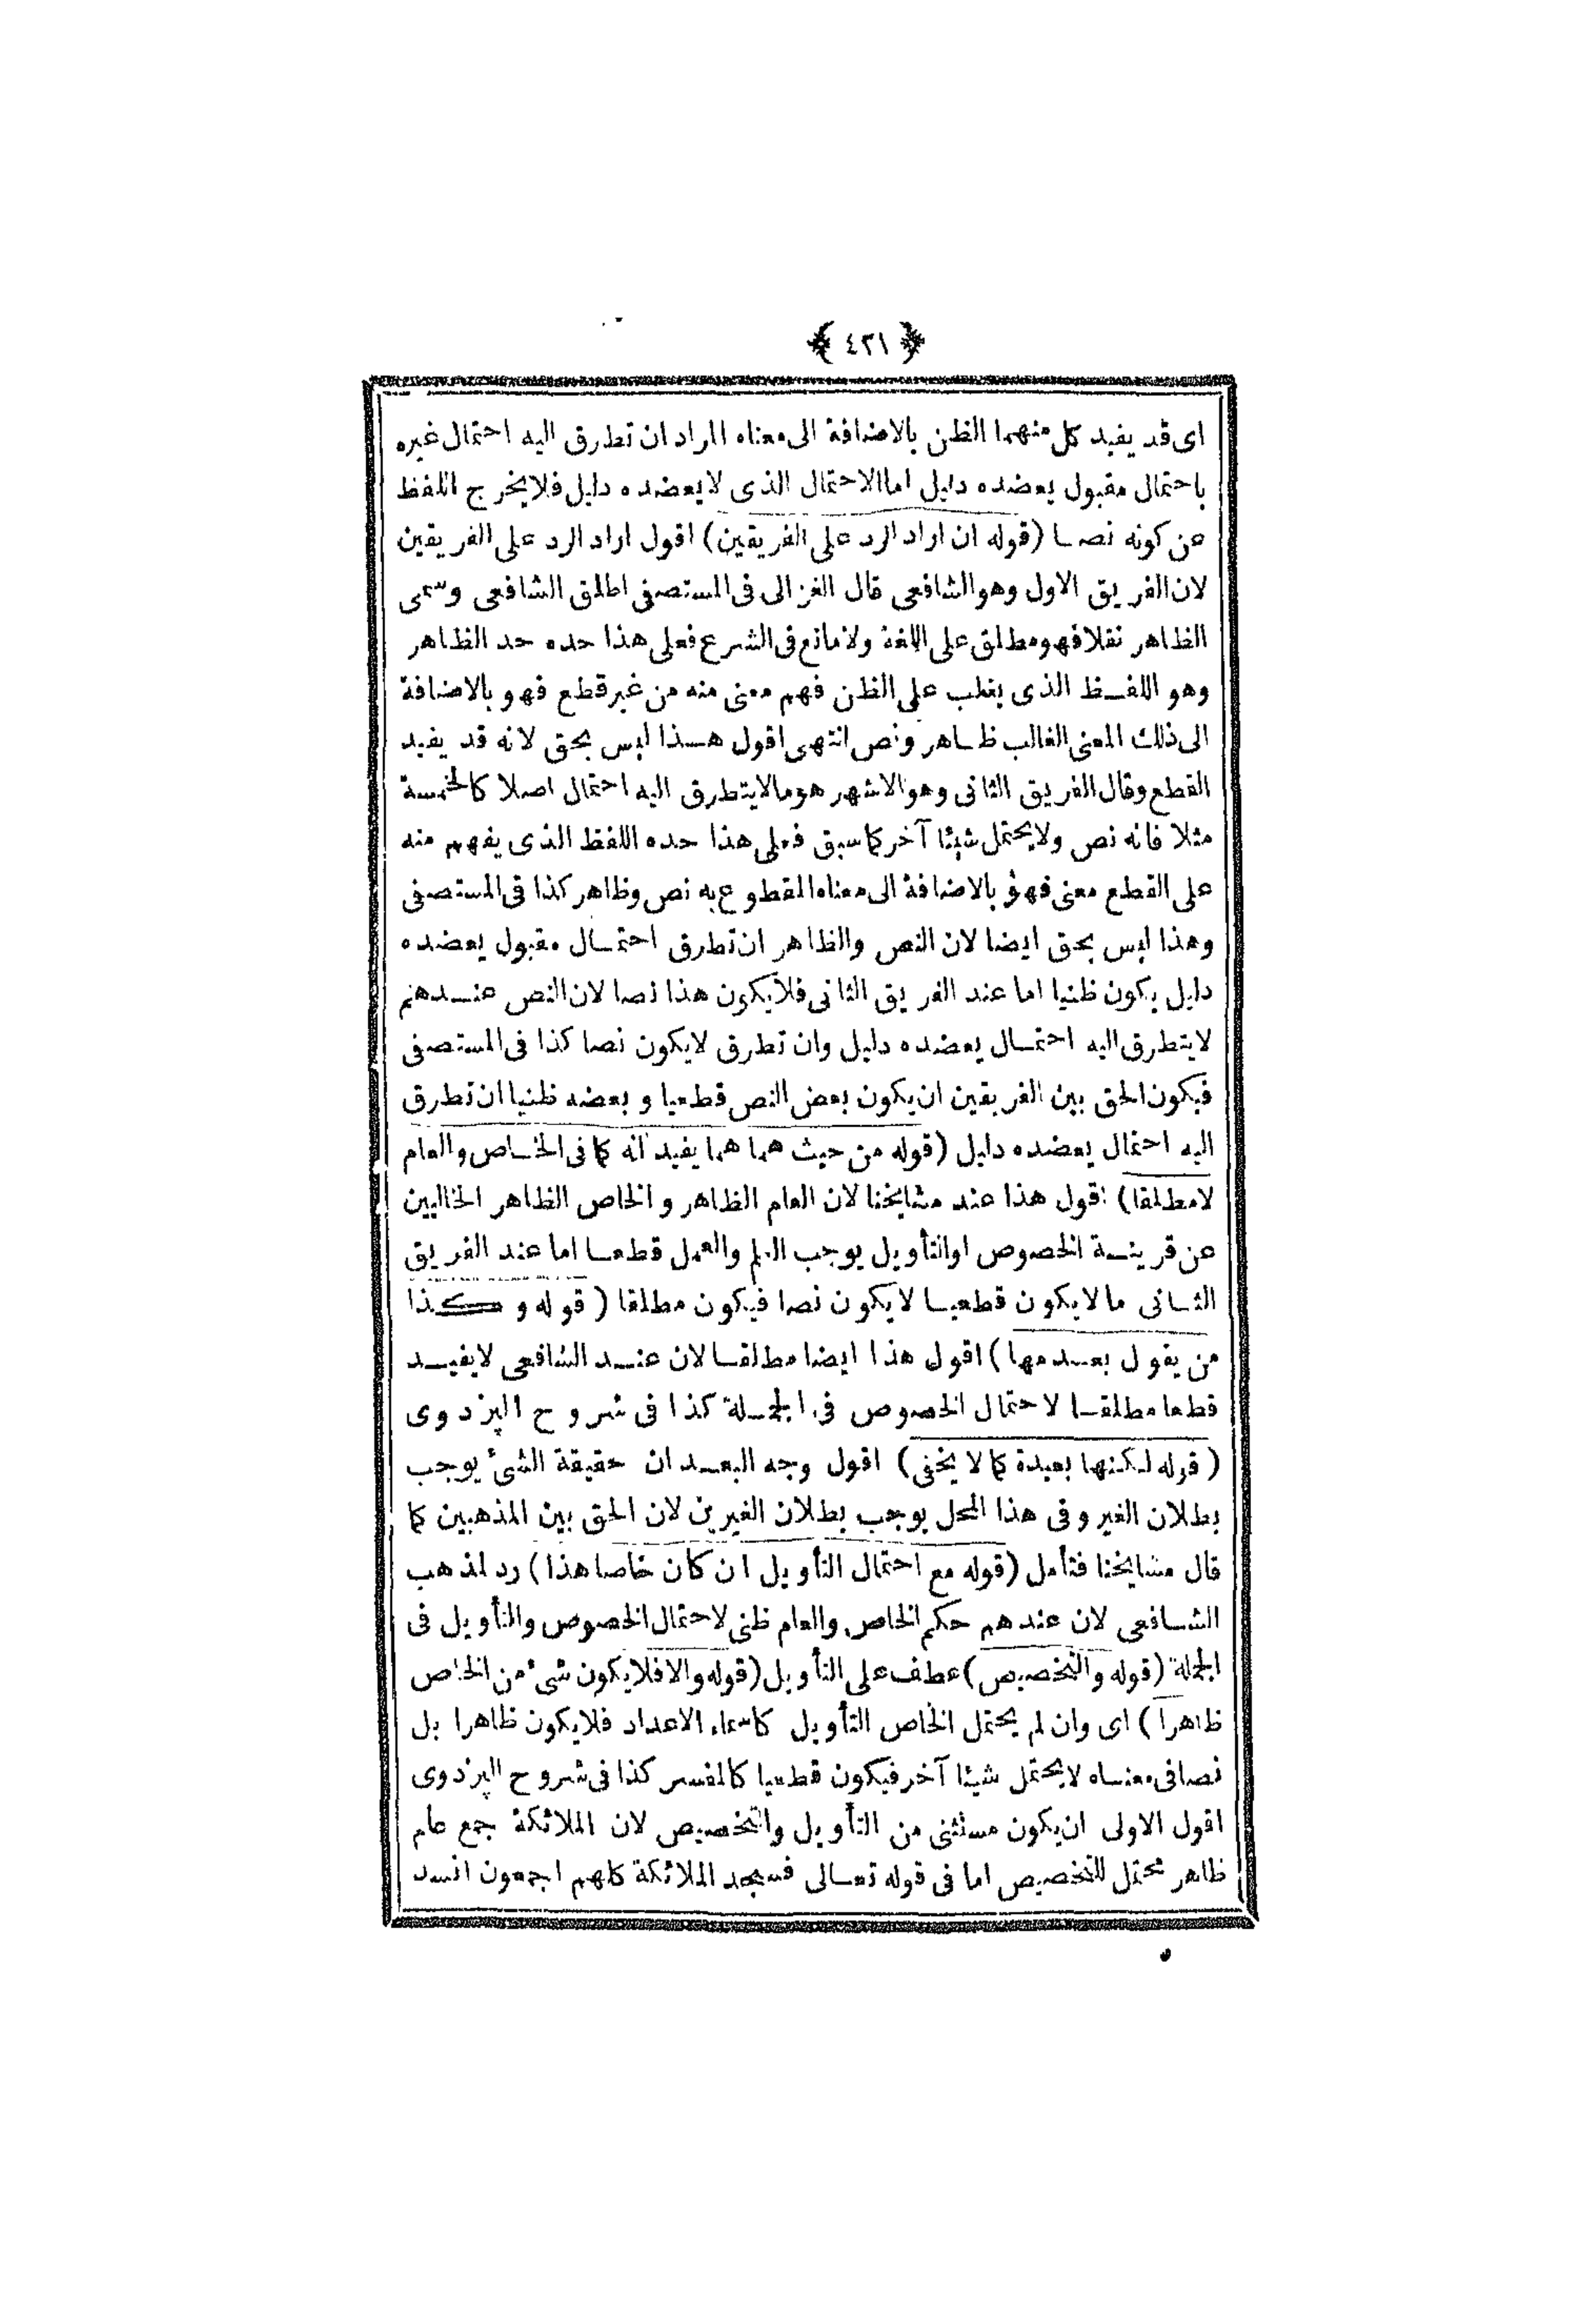 ﴿ ٤٣١ ﴾
اى قد يفيد كل منهما الظن بالاضافة الى معناه المراد ان تطرق اليه احتمال غيره
باحتمال مقبول يعضده دليل اما الاحتمال الذى لا يعضده دليل فلا يخرج اللفظ
عن كونه نصا (قوله ان اراد الرد على الفريقين) اقول اراد الرد على الفريقين
لان الفريق الاول وهو الشافعى قال الغزالى فى المستصفى اطلق الشافعى وسمى
الظاهر نقلا فهو مطلق على اللغة ولا مانع فى الشرع فعلى هذا حده حد الظاهر
وهو اللفظ الذى يغلب على الظن فهم معنى منه من غير قطع فهو بالاضافة
الى ذلك المعنى الغالب ظاهر ونص انتهى اقول هذا ليس بحق لانه قد يفيد
القطع وقال الفريق الثانى وهو الاشهر هو مالا يتطرق اليه احتمال اصلا كالخمسة
مثلا فانه نص ولا يحتمل شيئا آخر كما سبق فعلى هذا حده اللفظ الذى يفهم منه
على القطع معنى فهو بالاضافة الى معناه المقطوع به نص وظاهر كذا فى المستصفى
وهذا ليس بحق ايضا لان النص والظاهر ان تطرق احتمال مقبول يعضده
دليل يكون ظنيا اما عند الفريق الثانى فلا يكون هذا نصا لان النص عندهم
لا يتطرق اليه احتمال يعضده دليل وان تطرق لا يكون نصا كذا فى المستصفى
فيكون الحق بين الفريقين ان يكون بعض النص قطعيا و بعضه ظنيا ان تطرق
اليه احتمال يعضده دليل (قوله من حيث هما هما يفيد انه كما فى الخاص والعام
لا مطلقا) اقول هذا عند مشايخنا لان العام الظاهر و الخاص الظاهر الخاليين
عن قرينة الخصوص او التأويل يوجب العلم والعمل قطعا اما عند الفريق
الثانى ما لا يكون قطعيا لا يكون نصا فيكون مطلقا (قوله و كذا
من يقول بعدمها) اقول هذا ايضا مطلقا لان عند الشافعى لا يفيد
قطعا مطلقا لاحتمال الخصوص فى الجملة كذا فى شروح البزدوى
(قوله لكنها بعيدة كما لا يخفى) اقول وجه البعد ان حقيقة الشئ يوجب
بطلان الغير وفى هذا المحل يوجب بطلان الغيرين لان الحق بين المذهبين كما
قال مشايخنا فتأمل (قوله مع احتمال التأويل ان كان خاصا هذا) رد لمذهب
الشافعى لان عندهم حكم الخاص والعام ظنى لاحتمال الخصوص والتأويل فى
الجملة (قوله والتخصيص) عطف على التأويل (قوله والا فلا يكون شئ من الخاص
ظاهرا) اى وان لم يحتمل الخاص التأويل كاسماء الاعداد فلا يكون ظاهرا بل
نصا فى معناه لا يحتمل شيئا آخر فيكون قطعيا كالمفسر كذا فى شروح البزدوى
اقول الاولى ان يكون مستثنى من التأويل والتخصيص لان الملائكة جمع عام
ظاهر محتمل للتخصيص اما فى قوله تعالى فسجد الملائكة كلهم اجمعون انسد